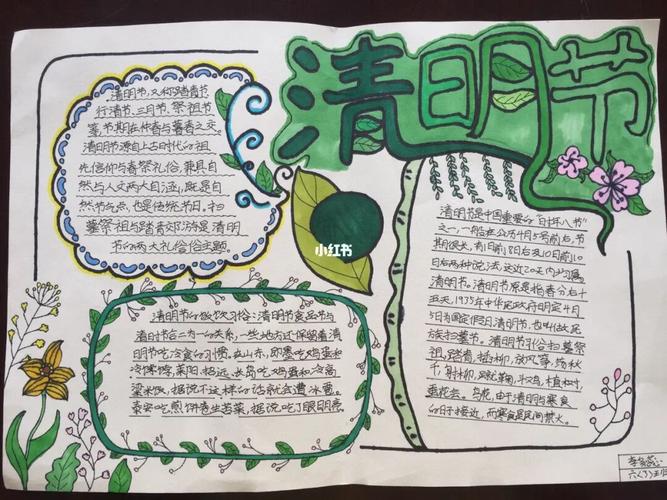 清明节
清明节，又称踏青节
行清节、三月节、祭祖节
等，节期在仲春与暮春之交。
清明节源自上古时代的祖
先信仰与春祭礼俗，兼具自
然与人文两大内涵，既是自
然节气点，也是传统节日。扫
墓祭祖与踏青郊游是清明
节的两大礼俗主题。
小红书
清明节的饮食习俗：清明节食品节与
清明时节合二为一的关系，一些地方还保留着清
明节吃冷食的习惯。在山东，即墨吃鸡蛋和
冷饽饽，莱阳、招远、长岛吃鸡蛋和冷高
粱米饭，据说不这样的话就会遭冰雹。
泰安吃煎饼卷生苦菜，据说吃了眼明亮
清明节是中国重要的"时年八节"
之一，一般是在公历4月5号前后，节
期很长，有10日前8日后及10日前10
日后两种说法，这近20天内均属
清明节。清明节原是指春分后十
五天，1935年中华民政府明定4月
5日为国定假日清明节，也叫做民
族扫墓节。清明节习俗扫墓祭
祖、踏青、插柳、放风筝、荡秋
千、射柳、蹴鞠、斗鸡、植树
由于清明与寒食
的日子接近，而寒食是民间禁火
六(3)班